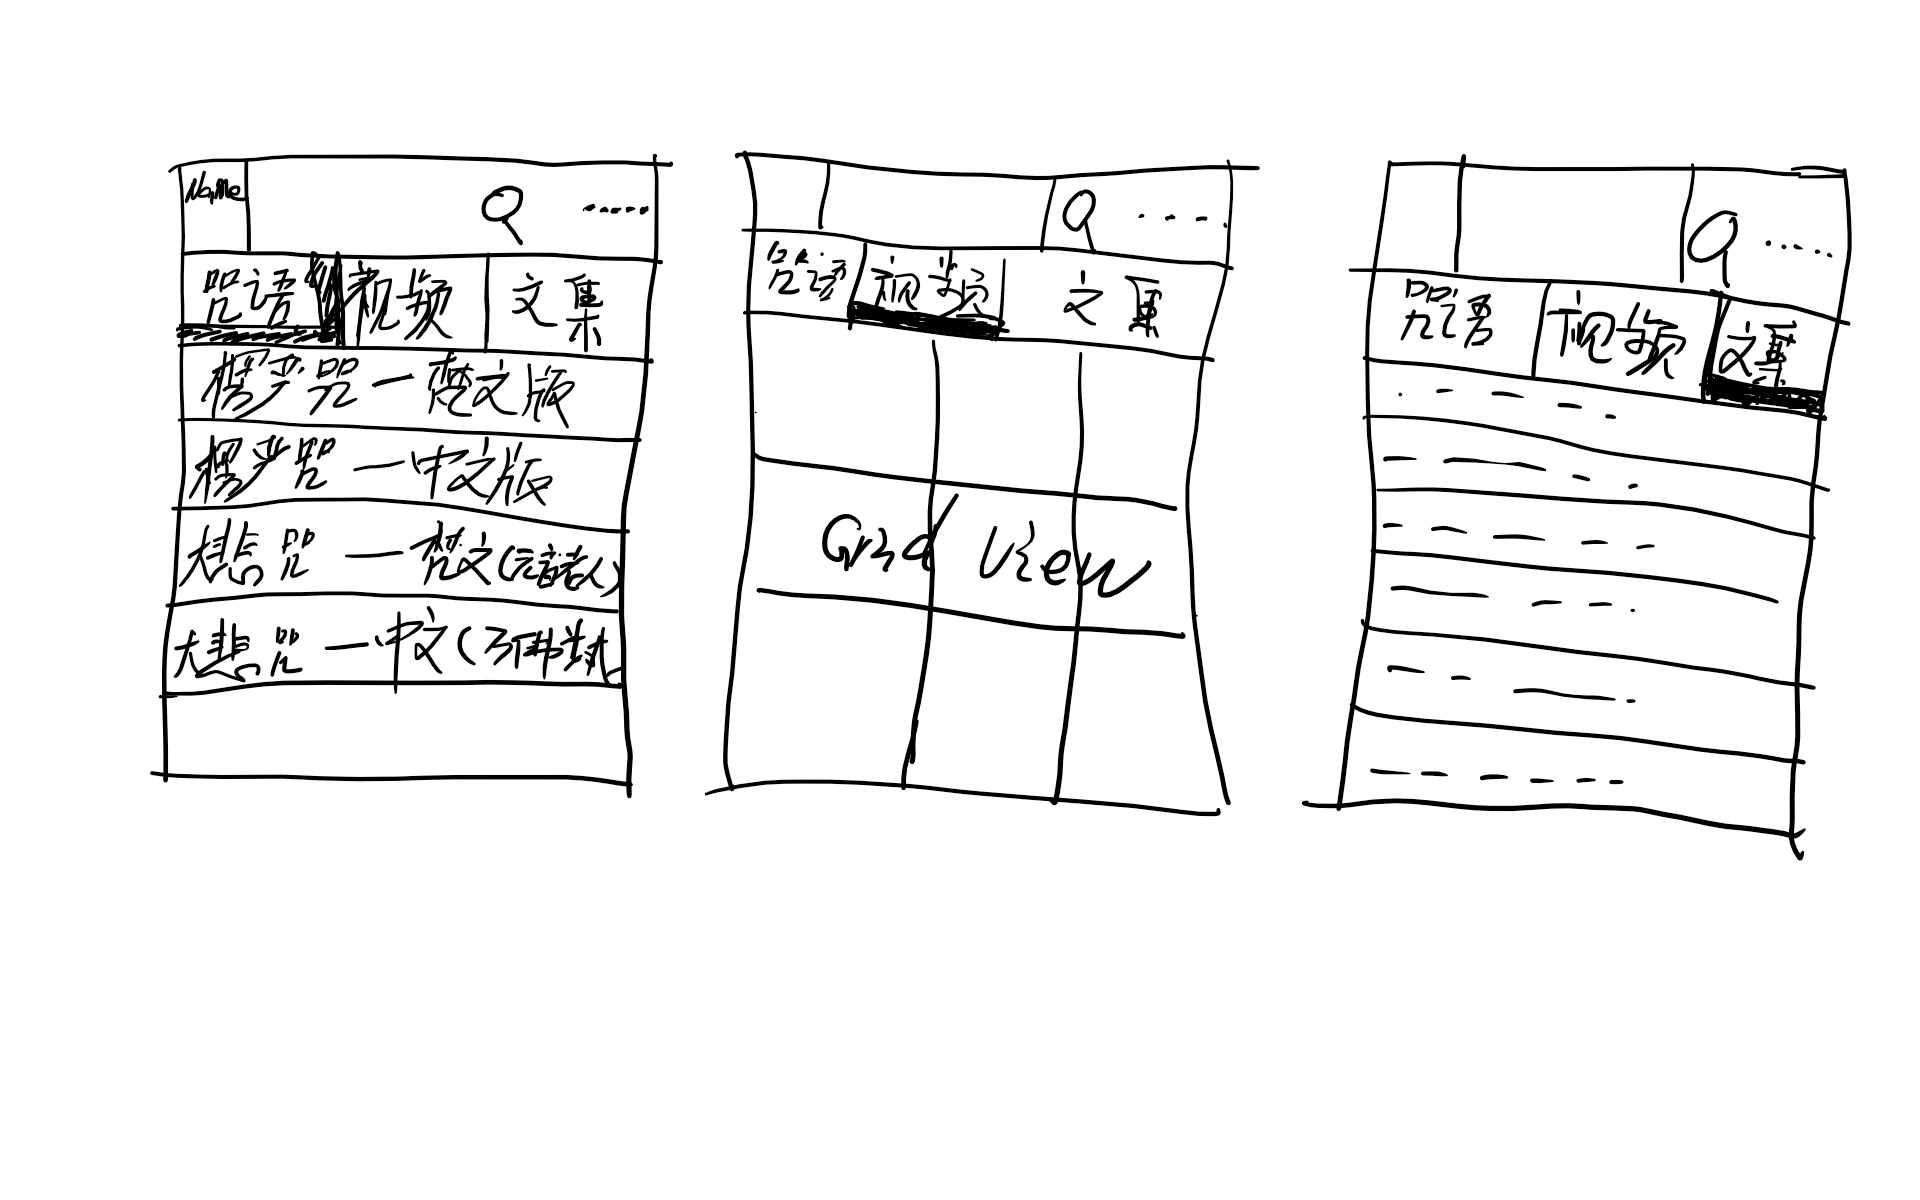 Name
咒语 视频 文集
楞严咒一梵文版
楞严咒一中文版
大悲咒一梵文
大悲咒一中文(万佛
咒语 视频 文集
Grid View
咒语 视频 文集